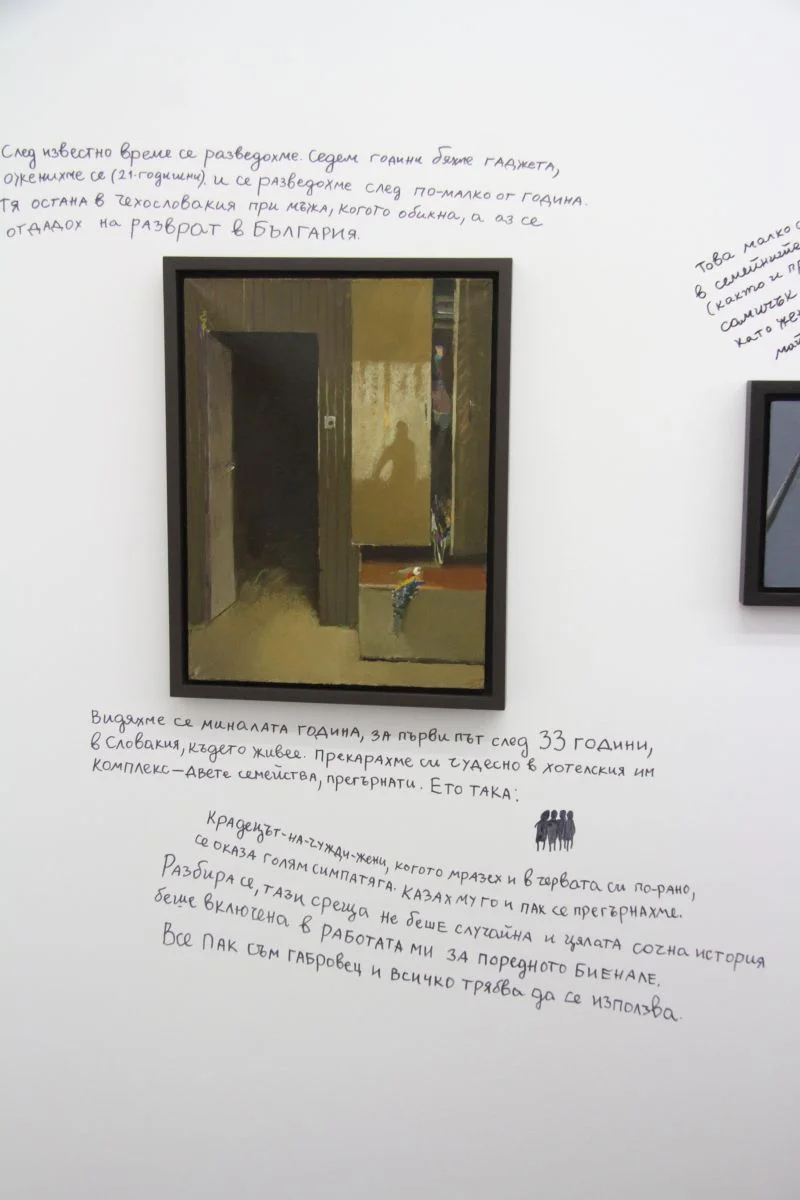 След известно време се разведохме. Седем години бяхме гаджета,
оженихме се (21-годишни) и се разведохме след по-малко от година.
Тя остана в Чехословакия при мъжа, когото обикна, а аз се
отдадох на разврат в България.
Това малко
в семейните
(както и
самичък
като
Видяхме се миналата година, за първи път след 33 години,
в Словакия, където живее. Прекарахме си чудесно в хотелския им
комплекс – двете семейства, прегърнати. Ето така:
Крадецът-на-чужди-жени, когото мразех и в червата си по-рано,
се оказа голям симпатяга. Казах му го и пак се прегърнахме.
Разбира се, тази среща не беше случайна и цялата сочна история
беше включена в работата ми за поредното биенале.
Все пак съм габровец и всичко трябва да се използва.